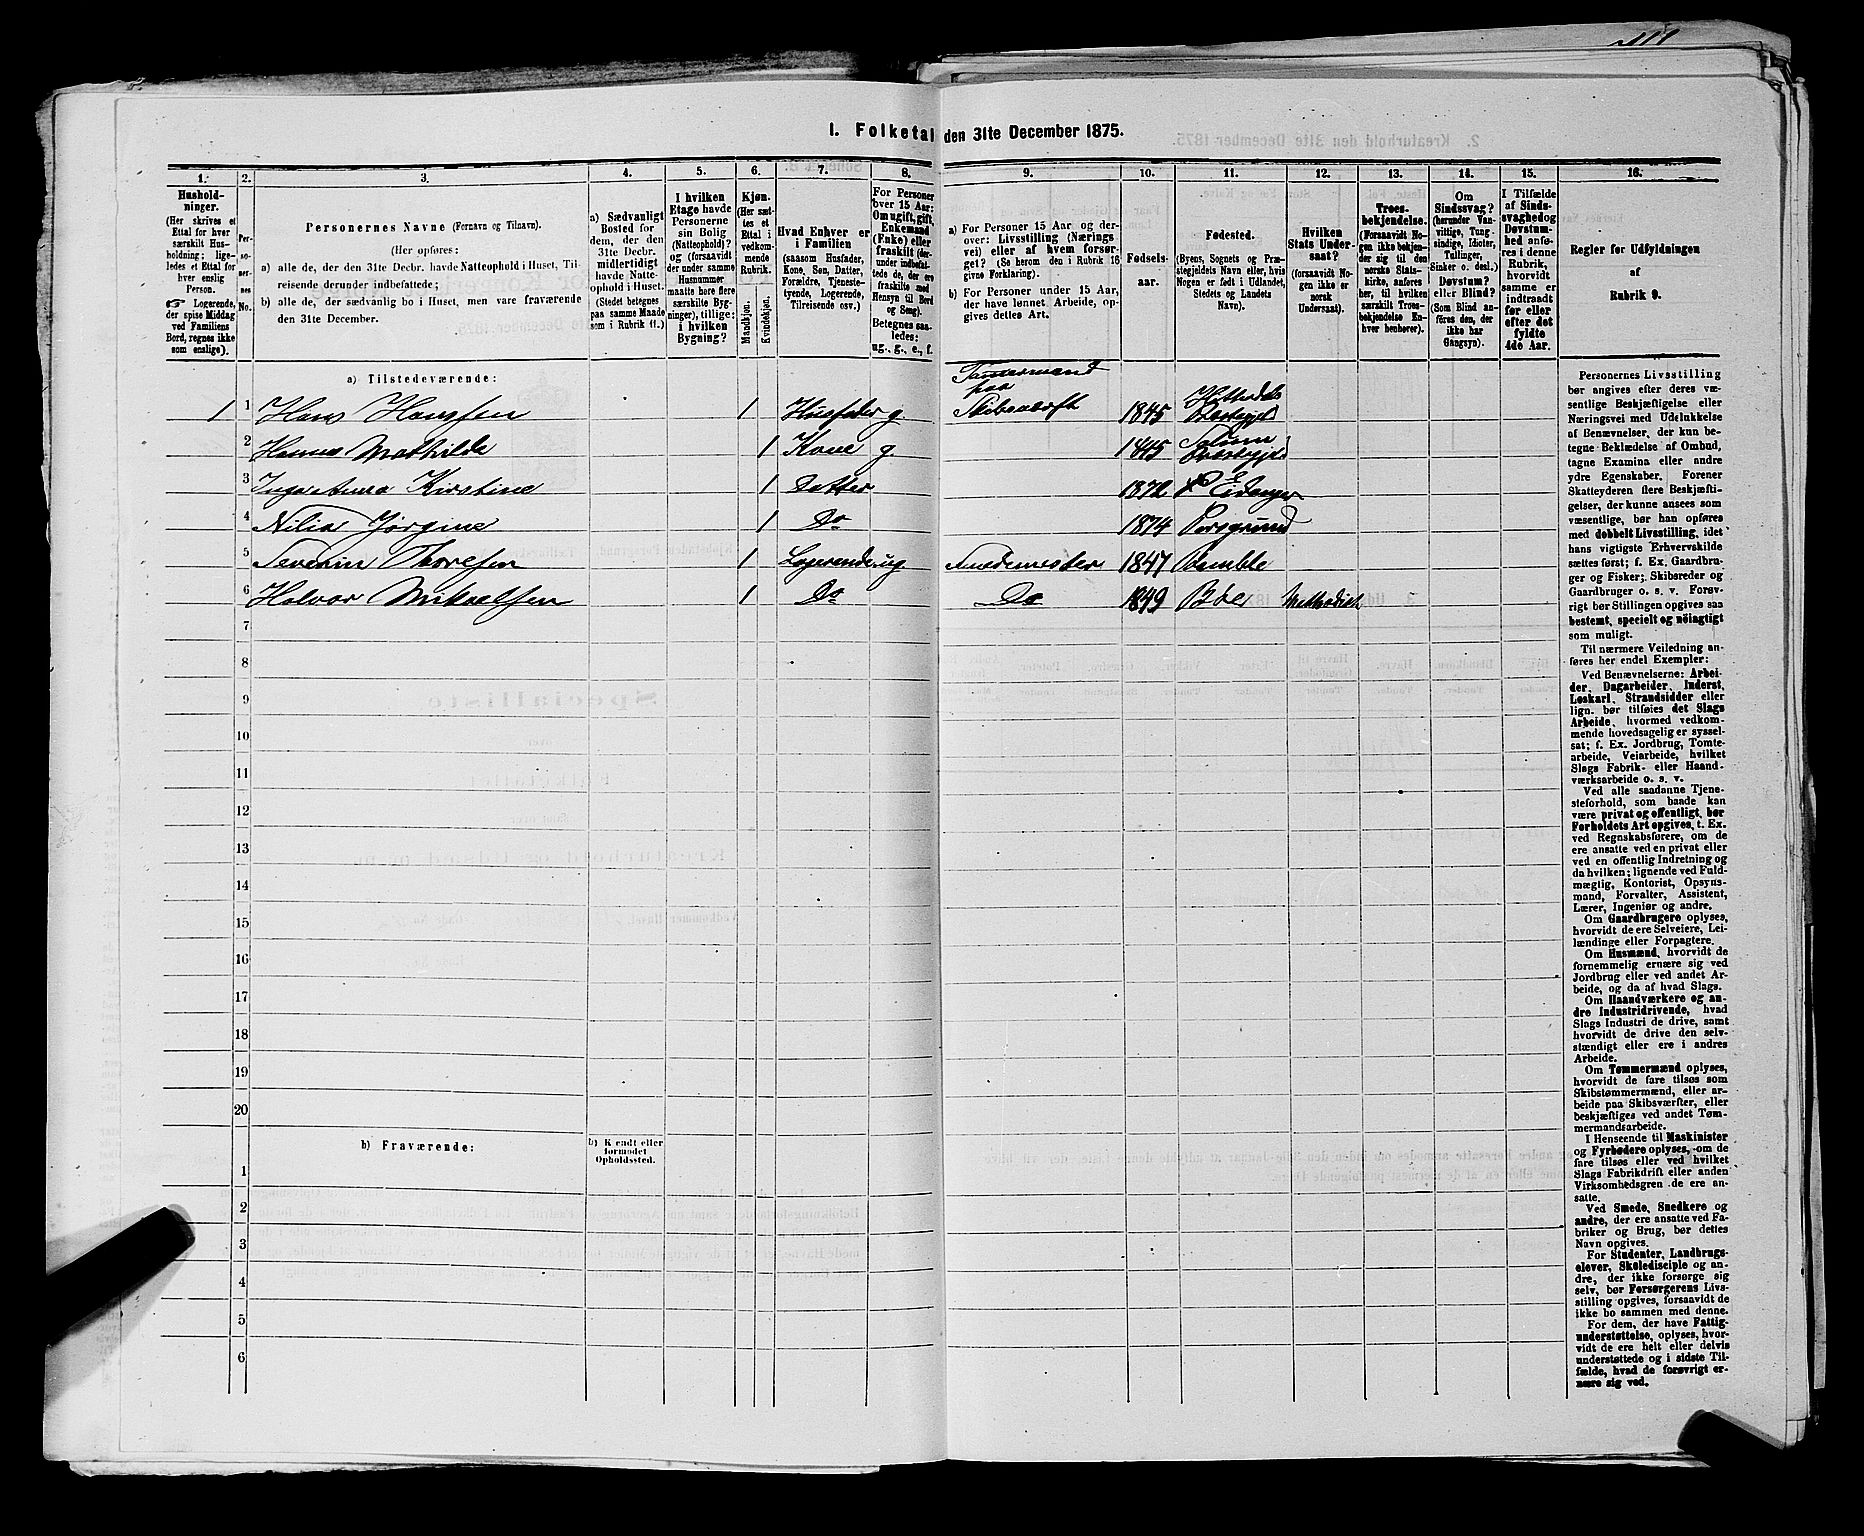 I. Folketal den 31te December 1875.
1.
2.
3.
4.
5.
6.
7.
8.
9.
10.
11.
12.
13.
14.
15.
16.
Hushold-
ninger.
(Her skrives et
Ettal for hver
særskilt Hus-
holdning; lige-
ledes et Ettal for
hver enslig
Person.
☞ Logerende,
der spise Middag
ved Familiens
Bord, regnes ikke
som enslige).
Per-
so-
ner-
nes
No.
Personernes Navne (Fornavn og Tilnavn).
(Her opføres:
a) alle de, der den 31te Decbr. havde Natteophold i Huset, Til-
reisende derunder indbefattede;
b) alle de, der sædvanlig bo i Huset, men vare fraværende
den 31te December.
a) Sædvanligt
Bosted for
dem, der den
31te Decbr.
midlertidigt
havde Natte-
ophold i Huset.
(Stedet betegnes
paa samme Maade
som i Rubrik 11.)
I hvilken
Etage havde
Personerne
sin Bolig
(Natteophold)?
og (forsaavidt
der under samme
Husnummer
maatte høre flere
særskilte Byg-
ninger), tillige:
i hvilken
Bygning?
Kjøn.
(Her sæt-
tes et
Ettal i
vedkom-
mende
Rubrik.)
Mandkjøn.
Kvindekjøn.
Hvad Enhver er
i Familien
(saasom Husfader,
Kone, Søn, Datter,
Forældre, Tjeneste-
tyende, Logerende,
Tilreisende osv.)
For Personer
over 15 Aar:
Om ugift, gift,
Enkemand
(Enke) eller
fraskilt (der-
under indbefat-
tede de, der ere
fraskilte med
Hensyn til Bord
og Seng).
Betegnes saa-
ledes:
ug., g., e., f.
a) For Personer 15 Aar og der-
over: Livsstilling (Nærings-
vei) eller af hvem forsør-
get? (Se herom den i Rubrik 16
givne Forklaring).
b) For Personer under 15 Aar,
der have lønnet Arbeide, op-
gives dettes Art.
Fødsels-
aar.
Fødested.
(Byens, Sognets og Præ-
stegjeldets Navn eller, hvis
Nogen er født i Udlandet,
Stedets og Landets
Navn).
Hvilken
Stats Under-
saat?
(forsaavidt No-
gen ikke er
norsk
Undersaat).
Troes-
bekjendelse.
(Forsaavidt No-
gen ikke bekjen-
der sig til den
norske Stats-
kirke, anføres
her, til hvilken
særskilt Troes-
bekjendelse En-
hver henhører).
Om
Sindssvag?
(herunder Van-
vittige, Tung-
sindige, Idioter,
Tullinger,
Sinker o. desl.)
Døvstum?
eller Blind?
(Som Blind an-
føres den, der
ikke har
Gangsyn).
I Tilfælde
af Sinds-
svaghed og
Døvstum-
hed anfø-
res i denne
Rubrik,
hvorvidt
samme er
indtraadt
før eller
efter det
fyldte
4de Aar.
Regler for Udfyldningen
af
Rubrik 9.
a) Tilstedeværende:
1 1 Hans Hansen 1 Husfader g Tømmermand paa 1845
2 Mathilde 1 Kone g 1845
3 Inga Anna Kirstine 1 Datter 1872 Eidanger
4 Nilia Jørgine 1 Do 1874 Porsgrund
5 Severin Thoresen 1 Logerende ug 1847 Bamble
6 Halvor Mikaelsen 1 Do Do 1849 Methodist
7
8
9
10
11
12
13
14
15
16
17
18
19
20
b) Fraværende:
b) Kjendt eller
formodet
Opholdssted.
1
2
3
4
5
6
Personernes Livsstilling
bør angives efter deres væ-
sentlige Beskjæftigelse eller
Næringsvei med Udelukkelse
af Benævnelser, der kun be-
tegne Beklædelse af Ombud,
tagne Examina eller andre
ydre Egenskaber. Forener
Skatteyderen flere Beskjæfti-
gelser, der kunne ansees som
væsentlige, bør han opføres
med dobbelt Livsstilling, idet
hans vigtigste Erhvervskilde
sættes først; f. Ex. Gaardbru-
ger og Fisker; Skibsreder og
Gaardbruger o. s. v. Forøv-
rigt bør Stillingen opgives saa
bestemt, specielt og nøiagtigt
som muligt.
Til nærmere Veiledning an-
føres her endel Exempler:
Ved Benævnelserne: Arbei-
der, Dagarbeider, Inderst,
Løskarl, Strandsidder eller
lign. bør tilføies det Slags
Arbeide, hvormed vedkom-
mende hovedsagelig er syssel-
sat; f. Ex. Jordbrug, Tomte-
arbeide, Veiarbeide, hvilket
Slags Fabrik- eller Haand-
værksarbeide o. s. v.
Ved alle saadanne Tjene-
steforhold, som baade kan
være privat og offentligt, bør
Forholdets Art opgives, t. Ex.
ved Regnskabsførere, om de
ere ansatte ved en privat eller
ved en offentlig Indretning og
da hvilken; lignende ved Fuld-
mægtig, Kontorist, Opsyns-
mand, Forvalter, Assistent,
Lærer, Ingeniør og andre.
Om Gaardbrugere oplyses,
hvorvidt de ere Selveiere, Lei-
lændinge eller Forpagtere.
Om Husmænd, hvorvidt de
fornemmelig ernære sig ved
Jordbrug eller ved andet Ar-
beide, og da af hvad Slags.
Om Haandværkere og an-
dre Industridrivende, hvad
Slags Industri de drive, samt
hvorvidt de drive den selv-
stændigt eller ere i andres
Arbeide.
Om Tømmermænd oplyses,
hvorvidt de fare tilsøs som
Skibstømmermænd, eller ar-
beide paa Skibsværfter, eller
beskjæftiges ved andet Tøm-
mermandsarbeide.
I Henseende til Maskinister
og Fyrbødere oplyses, om de
fare tilsøs eller ved hvilket
Slags Fabrikdrift eller anden
Virksomhedsgren de ere an-
satte.
Ved Smede, Snedkere og
andre, der ere ansatte ved Fa-
briker og Brug, bør dettes
Navn opgives.
For Studenter, Landbrugs-
elever, Skoledisciple og an-
dre, der ikke forsørge sig
selv, bør Forsørgerens Livs-
stilling opgives, forsaavidt de
ikke bo sammen med denne.
For dem, der have Fattig-
understøttelse, oplyses, hvor-
vidt de ere helt eller delvis
understøttede og i sidste Til-
fælde, hvad de forøvrigt er-
nære sig ved.